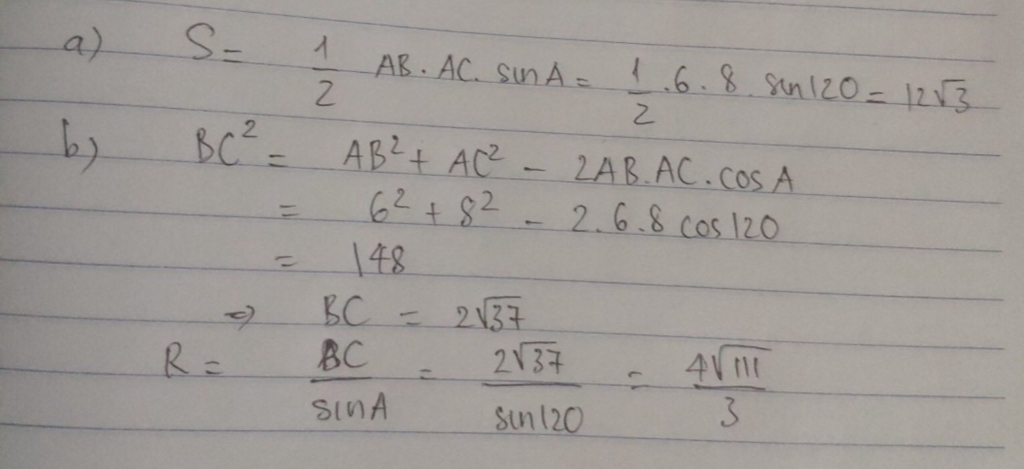 a) S = 1/2 AB.AC.sinA = 1/2 .6.8 sin120 = 12√3
b) BC² = AB² + AC² - 2AB.AC.cosA
= 6² + 8² - 2.6.8 cos120
= 148
⇒ BC = 2√37
R = BC/sinA = 2√37/sin120 = 4√111/3